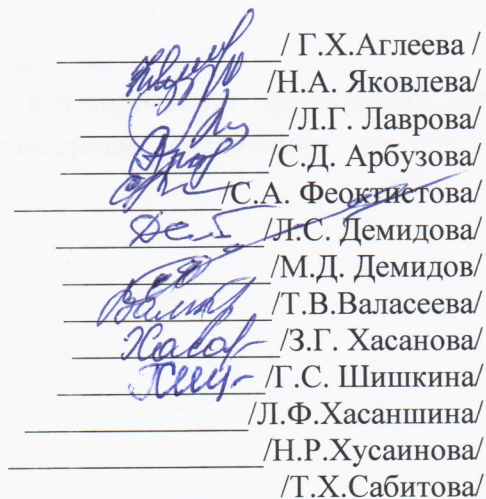 / Г.Х.Аглеева /
/Н.А. Яковлева/
/Л.Г. Лаврова/
/С.Д. Арбузова/
/С.А. Феоктистова/
/Л.С. Демидова/
/М.Д. Демидов/
/Т.В.Валасеева/
/З.Г. Хасанова/
/Г.С. Шишкина/
/Л.Ф.Хасаншина/
/Н.Р.Хусаинова/
/Т.Х.Сабитова/